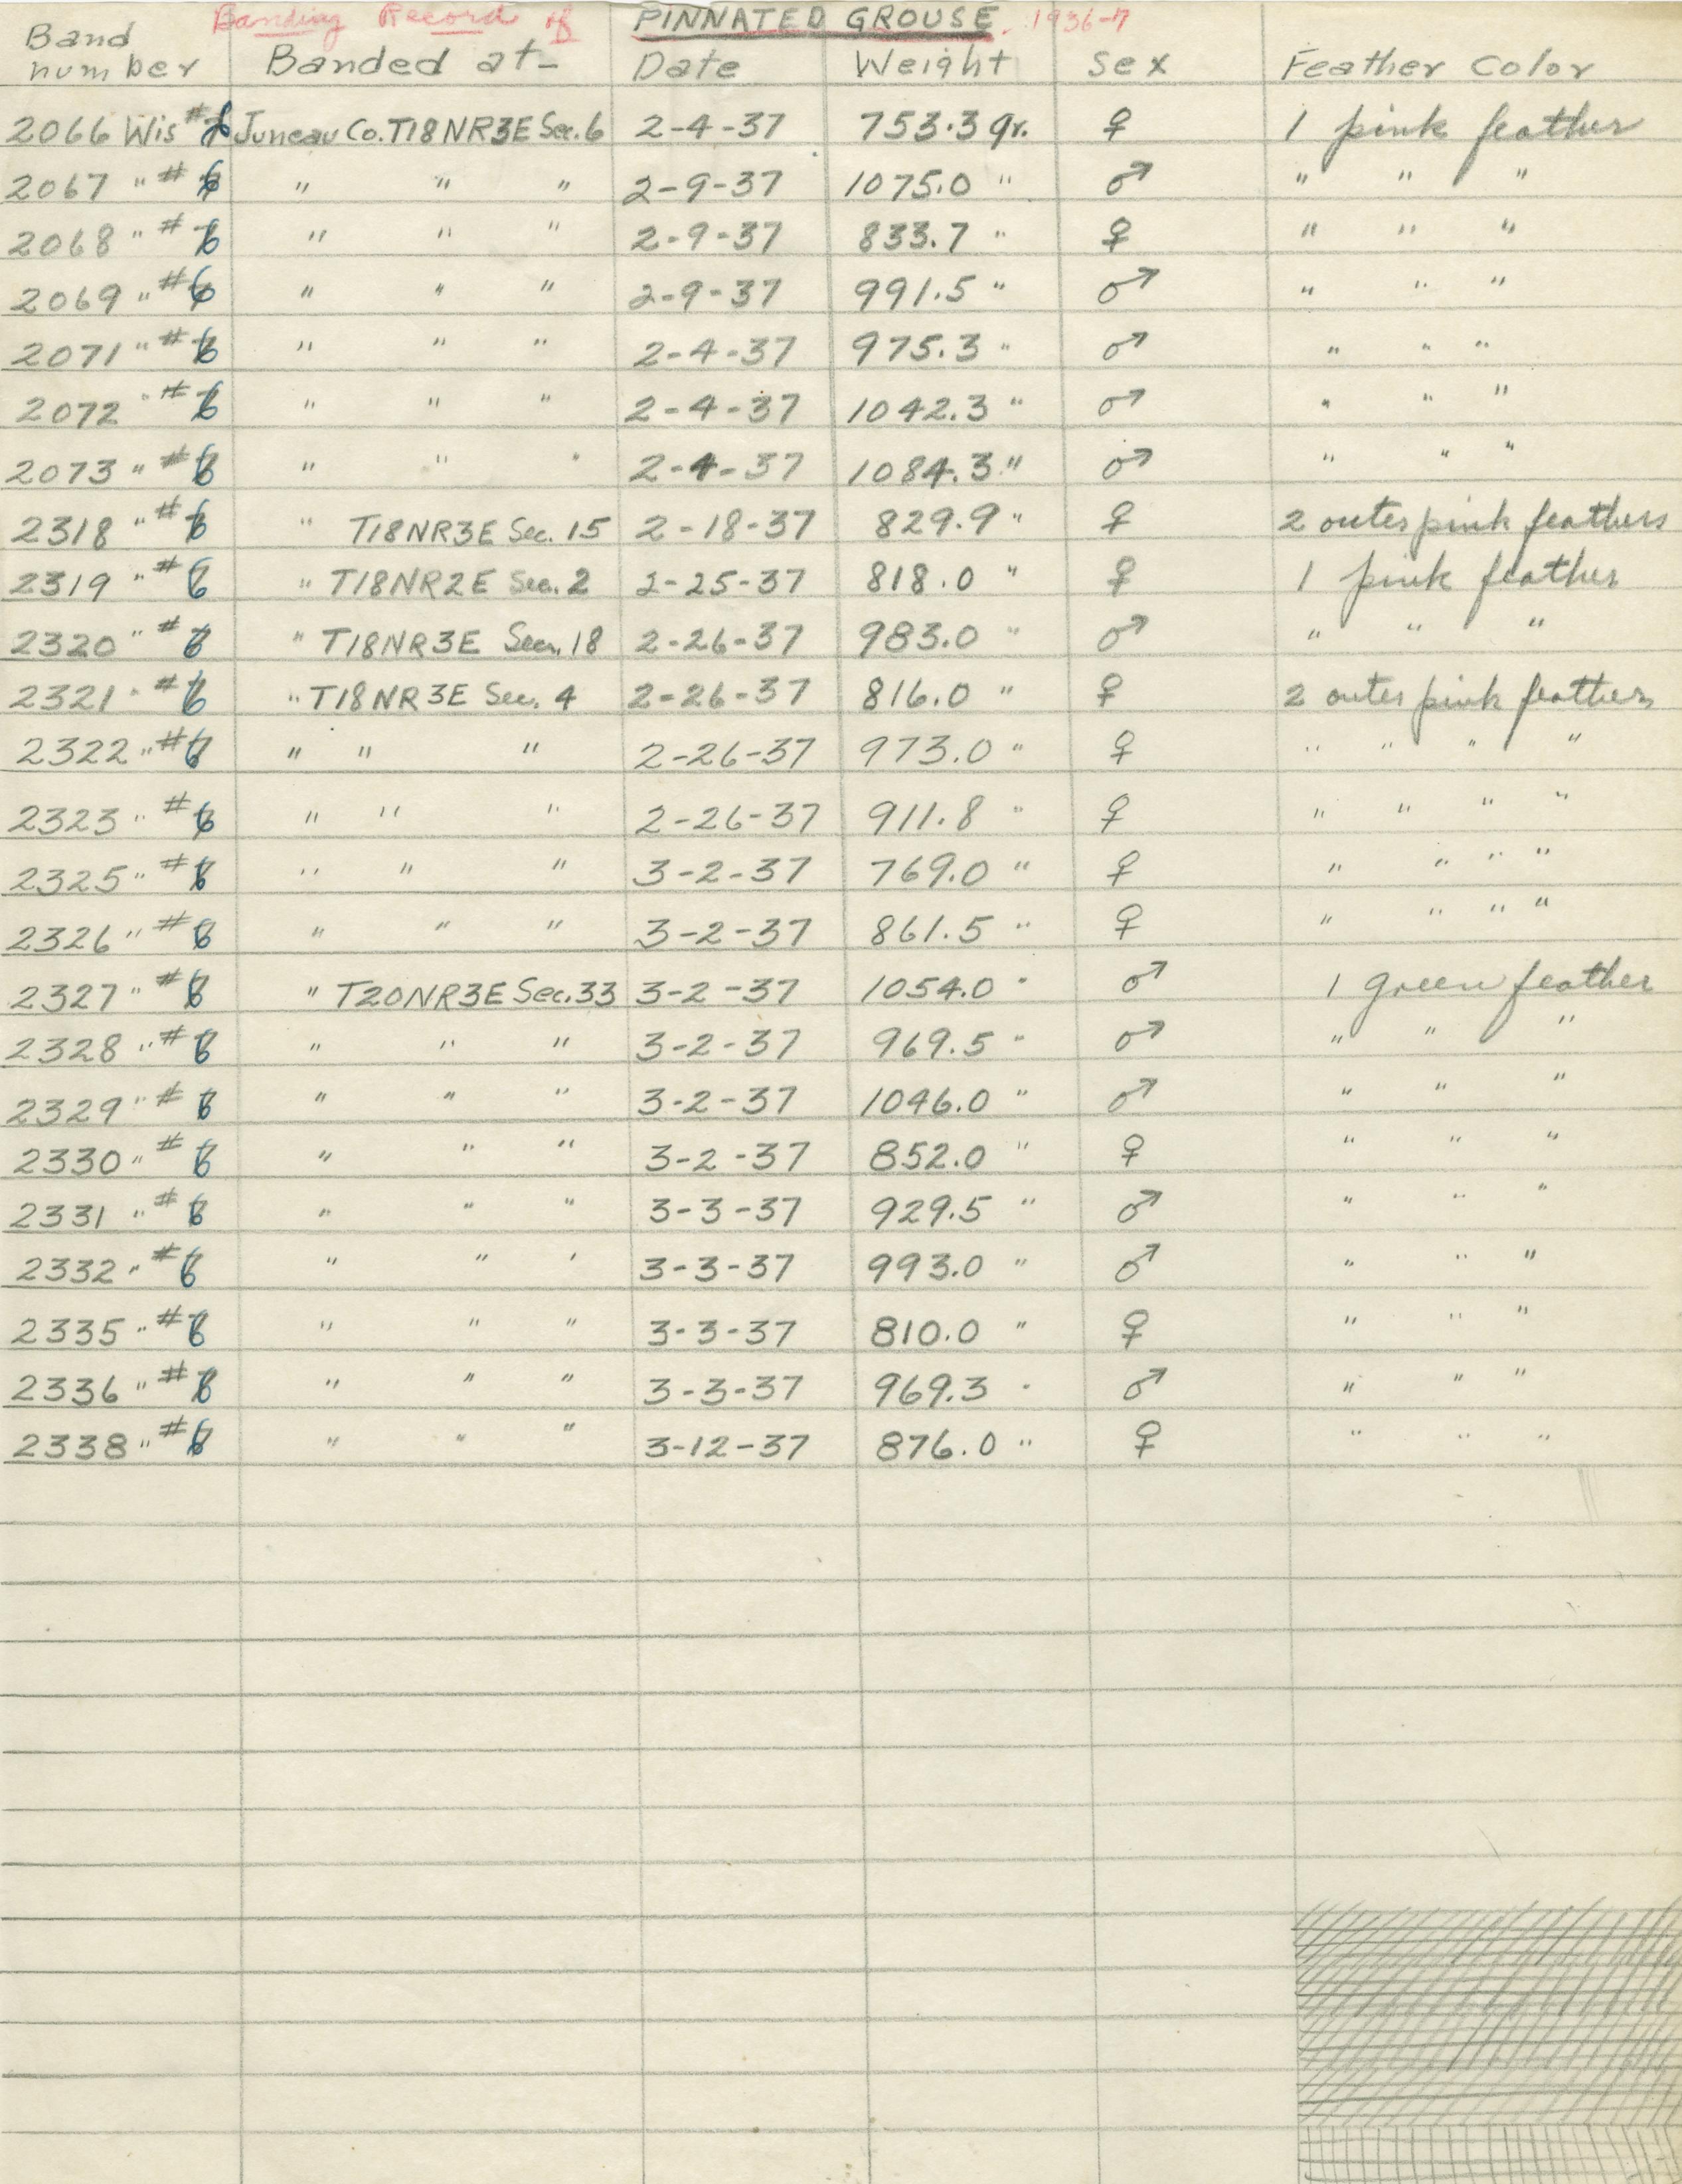 Banding Record of PINNATED GROUSE. 1936-7
Band number Banded at- Date Weight Sex Feather Color
2066 Wis # 6 Juneau Co. T18NR3E Sec. 6 2-4-37 753.3 gr. ♀ 1 pink feather
2067 " # 6 " " " 2-9-37 1075.0 " ♂ " " "
2068 " # 6 " " " 2-9-37 833.7 " ♀ " " "
2069 " # 6 " " " 2-9-37 991.5 " ♂ " " "
2071 " # 6 " " " 2-4-37 975.3 " ♂ " " "
2072 " # 6 " " " 2-4-37 1042.3 " ♂ " " "
2073 " # 6 " " " 2-4-37 1084.3 " ♂ " " "
2318 " # 6 " T18NR3E Sec. 15 2-18-37 829.9 " ♀ 2 outer pink feathers
2319 " # 6 " T18NR2E Sec. 2 2-25-37 818.0 " ♀ 1 pink feather
2320 " # 6 " T18NR3E Sec. 18 2-26-37 983.0 " ♂ " " "
2321 " # 6 " T18NR3E Sec. 4 2-26-37 816.0 " ♀ 2 outer pink feathers
2322 " # 6 " " " 2-26-37 973.0 " ♀ " " " "
2323 " # 6 " " " 2-26-37 911.8 " ♀ " " " "
2325 " # 6 " " " 3-2-37 769.0 " ♀ " " " "
2326 " # 6 " " " 3-2-37 861.5 " ♀ " " " "
2327 " # 6 " T20NR3E Sec. 33 3-2-37 1054.0 " ♂ 1 green feather
2328 " # 6 " " " 3-2-37 969.5 " ♂ " " "
2329 " # 6 " " " 3-2-37 1046.0 " ♂ " " "
2330 " # 6 " " " 3-2-37 852.0 " ♀ " " "
2331 " # 6 " " " 3-3-37 929.5 " ♂ " " "
2332 " # 6 " " " 3-3-37 993.0 " ♂ " " "
2335 " # 6 " " " 3-3-37 810.0 " ♀ " " "
2336 " # 6 " " " 3-3-37 969.3 " ♂ " " "
2338 " # 6 " " " 3-12-37 876.0 " ♀ " " "